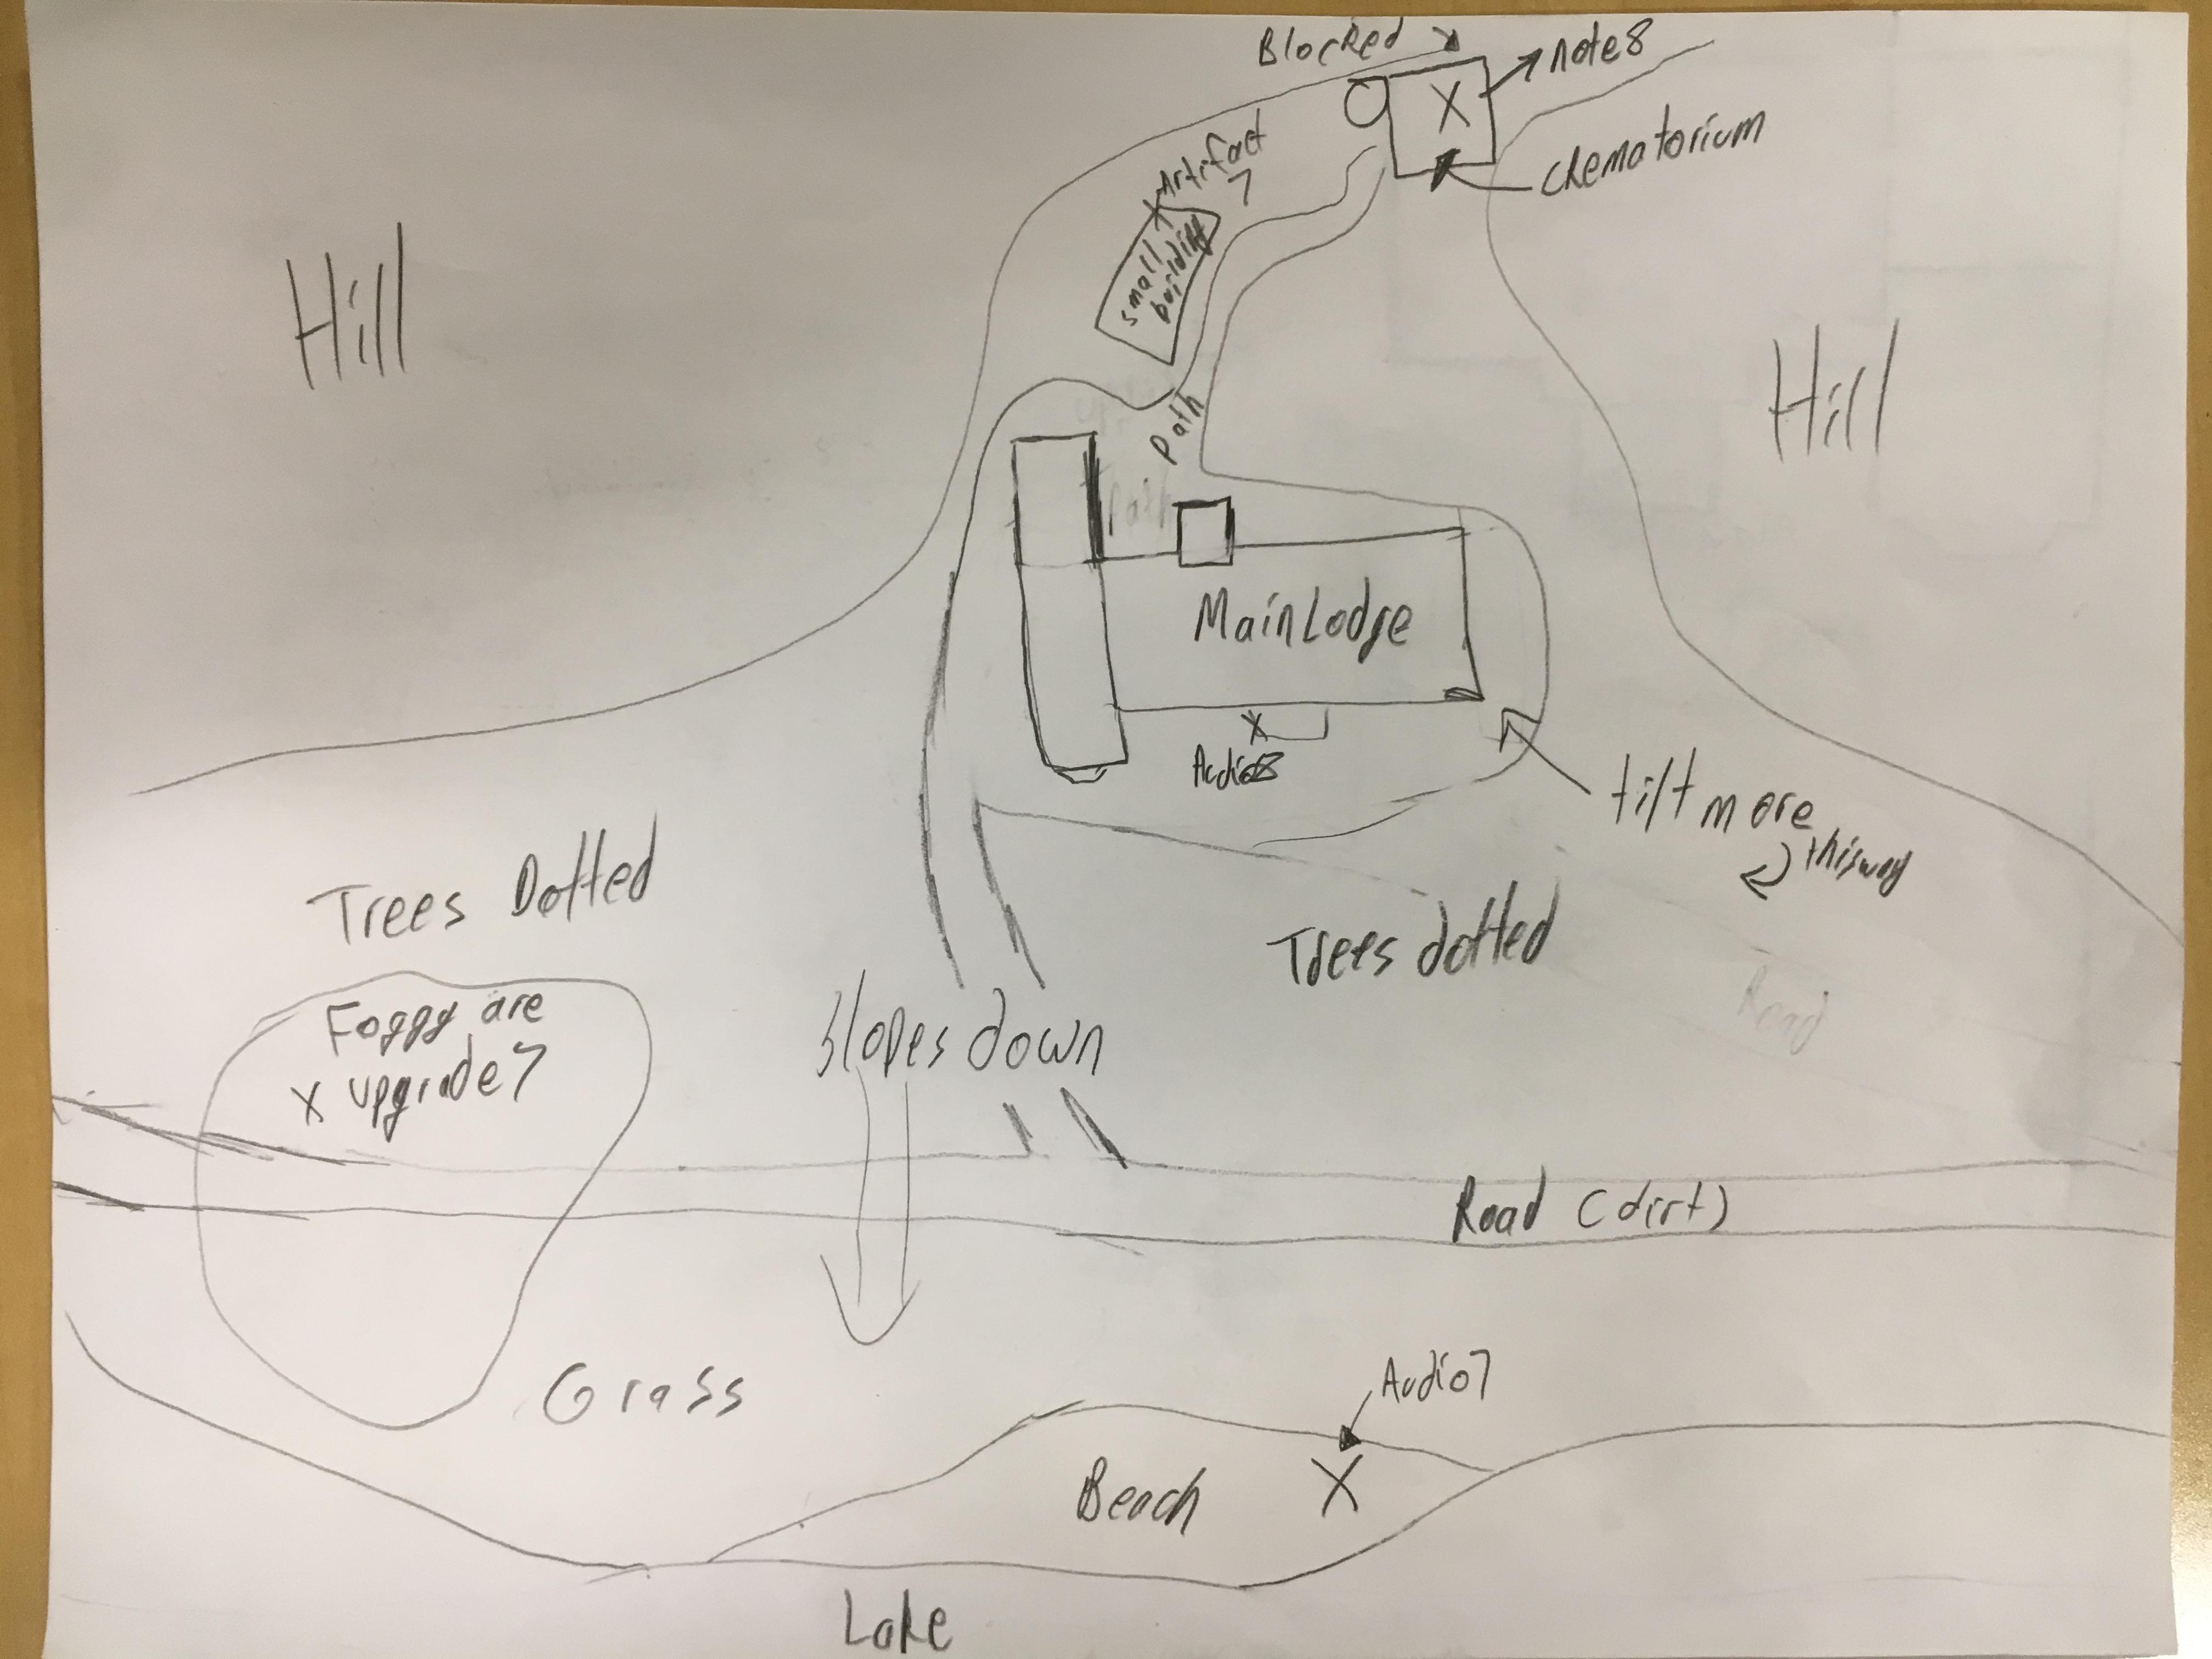 Blocked
note8
Artifact
7
chematorium
small
building
Hill
Hill
path
Main Lodge
Audio8
tilt more
this way
Trees Dotted
Trees dotted
Road
Foggy are
X upgrade7
Slopes down
Road (dirt)
Grass
Audio7
Beach
Lake